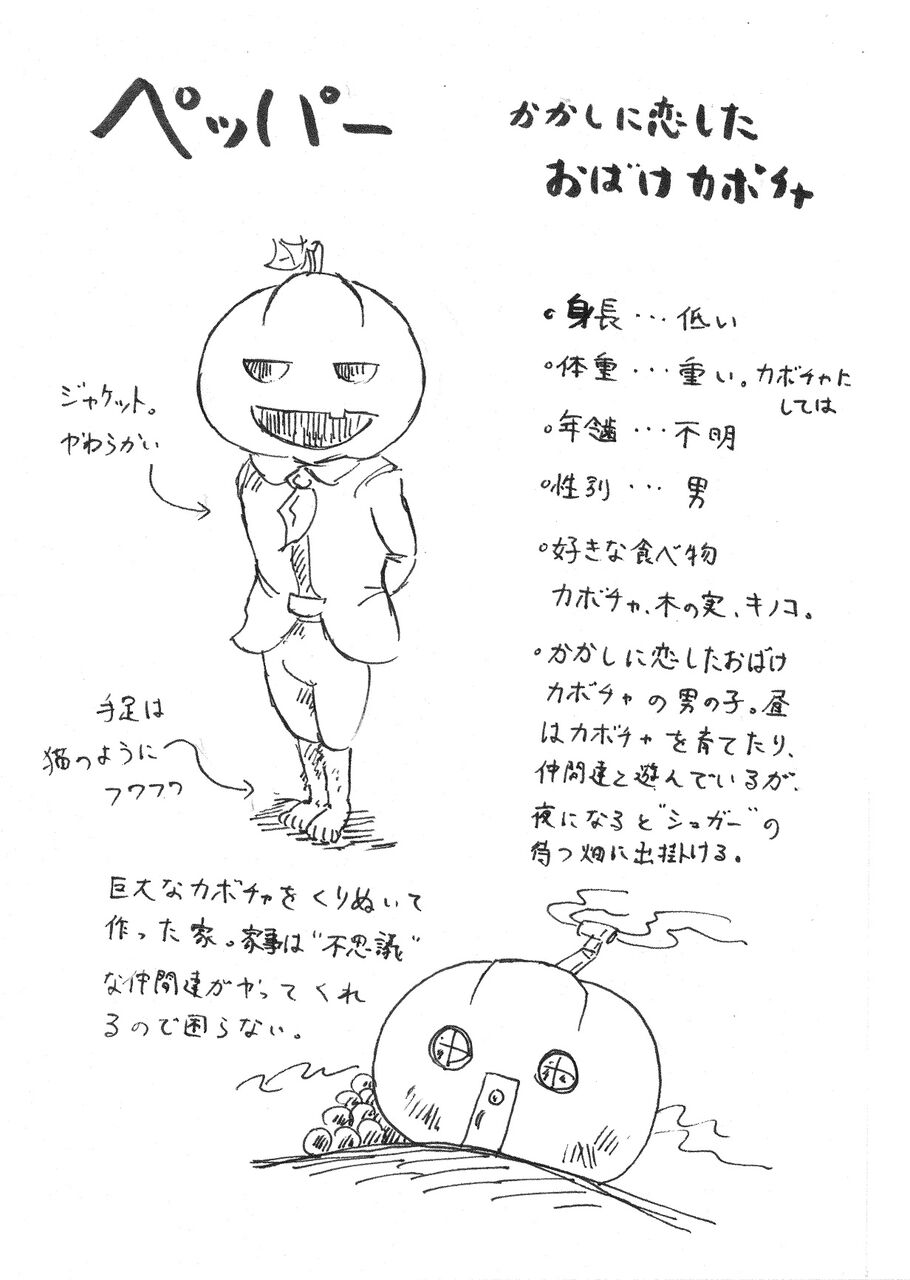 ペッパー
かかしに恋した
おばけカボチャ
・身長…低い
・体重…重い。カボチャに
しては
・年齢…不明
・性別…男
・好きな食べ物
カボチャ、木の実、キノコ。
・かかしに恋したおばけ
カボチャの男の子。昼
はカボチャを育てたり、
仲間達と遊んでいるが、
夜になると"シュガー"の
待つ畑に出掛ける。
ジャケット。
やわらかい
手足は
猫のように
フワフワ
巨大なカボチャをくりぬいて
作った家。家事は"不思議"
な仲間達がやってくれ
るので困らない。